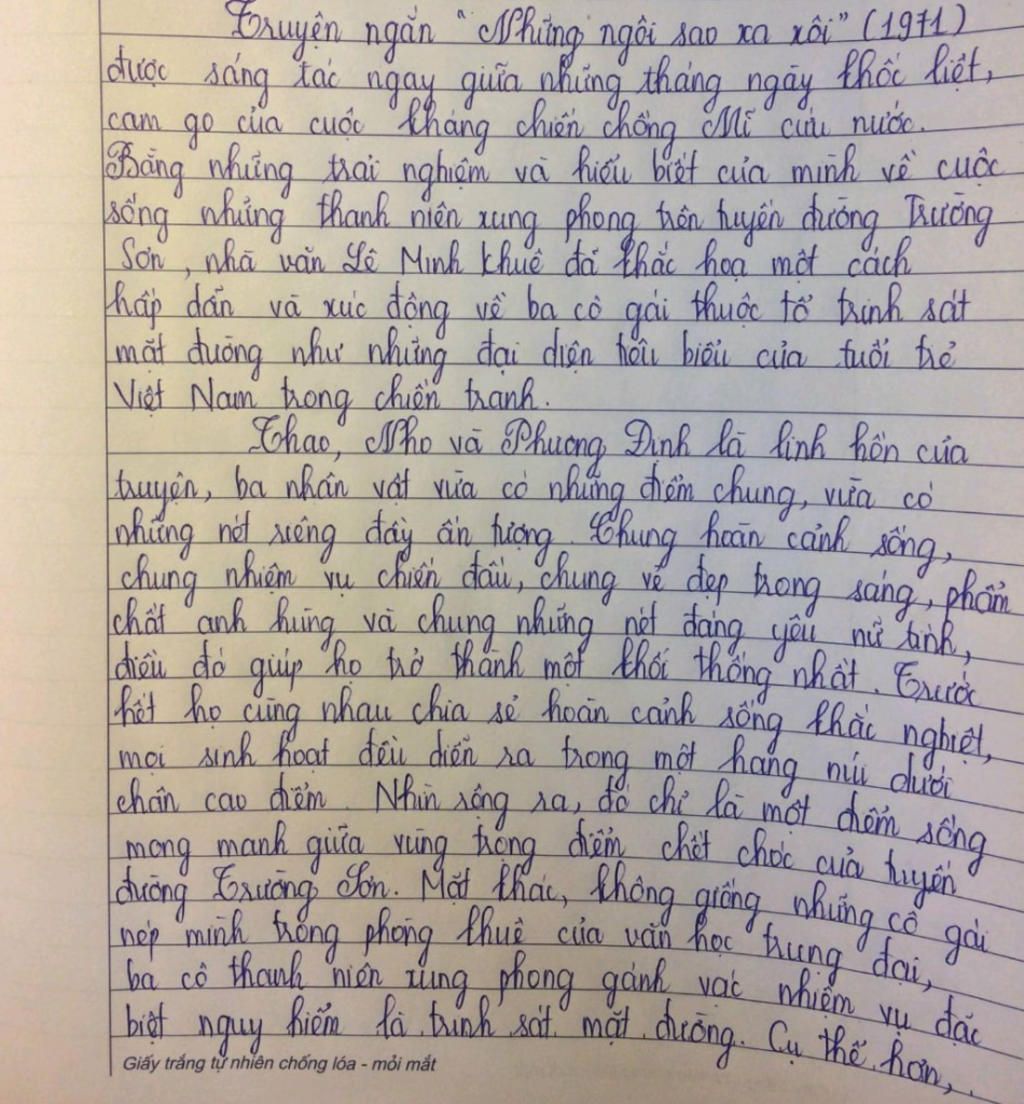 Truyện ngắn "Những ngôi sao xa xôi" (1971)
được sáng tác ngay giữa những tháng ngày khốc liệt,
cam go của cuộc kháng chiến chống Mĩ cứu nước.
Bằng những trải nghiệm và hiểu biết của mình về cuộc
sống những thanh niên xung phong trên tuyến đường Trường
Sơn, nhà văn Lê Minh Khuê đã khắc hoạ một cách
hấp dẫn và xúc động về ba cô gái thuộc tổ trinh sát
mặt đường như những đại diện tiêu biểu của tuổi trẻ
Việt Nam trong chiến tranh.
Thao, Nho và Phương Định là linh hồn của
truyện, ba nhân vật vừa có những điểm chung, vừa có
những nét riêng đầy ấn tượng. Chung hoàn cảnh sống,
chung nhiệm vụ chiến đấu, chung vẻ đẹp trong sáng, phẩm
chất anh hùng và chung những nét đáng yêu nữ tính,
điều đó giúp họ trở thành một khối thống nhất. Trước
hết họ cùng nhau chia sẻ hoàn cảnh sống khắc nghiệt,
mọi sinh hoạt đều diễn ra trong một hang núi dưới
chân cao điểm. Nhìn rộng ra, đó chỉ là một điểm sống
mong manh giữa vùng trọng điểm chết chóc của tuyến
đường Trường Sơn. Mặt khác, không giống những cô gái
nép mình trong phòng khuê của văn học trung đại,
ba cô thanh niên xung phong gánh vác nhiệm vụ đặc
biệt nguy hiểm là trinh sát mặt đường. Cụ thể hơn,
Giấy trắng tự nhiên chống lóa - mỏi mắt